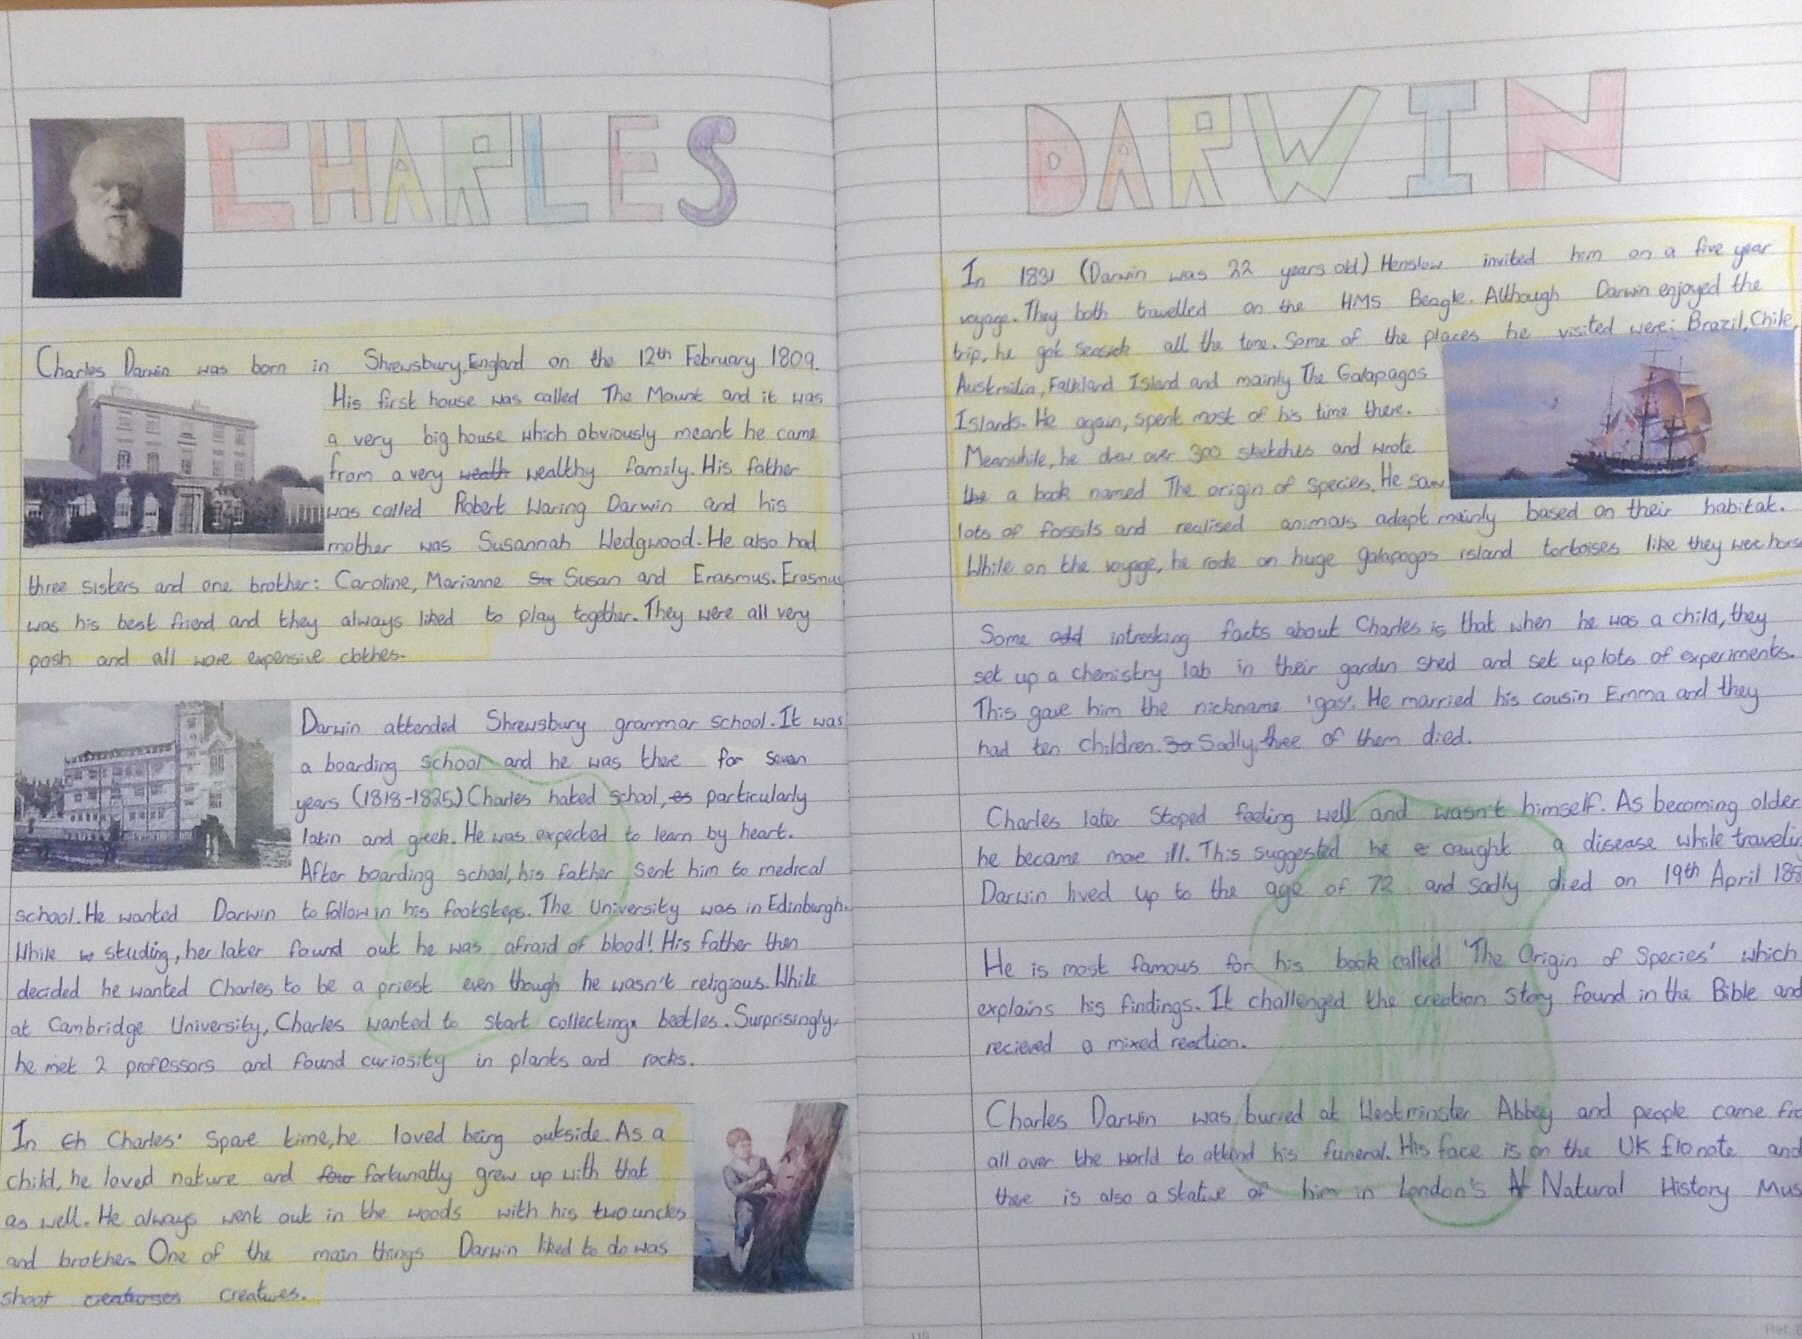 CHARLES
Charles Darwin was born in Shrewsbury, England on the 12th February 1809.
His first house was called The Mount and it was
a very big house which obviously meant he came
from a very wealth wealthy family. His father
was called Robert Waring Darwin and his
mother was Susannah Wedgwood. He also had
three sisters and one brother: Caroline, Marianne Sus Susan and Erasmus. Erasmus
was his best friend and they always liked to play together. They were all very
posh and all wore expensive clothes.
Darwin attended Shrewsbury grammar school. It was
a boarding school and he was there for seven
years (1818-1825) Charles hated school, es particularly
latin and greek. He was expected to learn by heart.
After boarding school, his father sent him to medical
school. He wanted Darwin to follow in his footsteps. The University was in Edinburgh.
While studing, her later found out he was afraid of blood! His father then
decided he wanted Charles to be a priest even though he wasn't religious. While
at Cambridge University, Charles wanted to start collecting beetles. Surprisingly,
he met 2 professors and found curiosity in plants and rocks.
In Ch Charles' spare time, he loved being outside. As a
child, he loved nature and four fortunatly grew up with that
as well. He always went out in the woods with his two uncles
and brother. One of the main things Darwin liked to do was
shoot creaturses creatures.
DARWIN
In 1831 (Darwin was 22 years old) Henslow invited him on a five year
voyage. They both travelled on the HMS Beagle. Although Darwin enjoyed the
trip, he got seasick all the time. Some of the places he visited were: Brazil, Chile,
Austrailia, Falkland Island and mainly The Galapagos
Islands. He again, spent most of his time there.
Meanwhile, he drew over 300 sketches and wrote
the a book named The origin of species. He saw
lots of fossils and realised animals adapt mainly based on their habitat.
While on the voyage, he rode on huge galapagos island tortoises like they were hors
Some add intresting facts about Charles is that when he was a child, they
set up a chemistry lab in their garden shed and set up lots of experiments.
This gave him the nickname 'gas'. He married his cousin Emma and they
had ten children. Sa Sadly, three of them died.
Charles later stoped feeling well and wasn't himself. As becoming older,
he became more ill. This suggested he c caught a disease while traveli
Darwin lived up to the age of 72 and sadly died on 19th April 188
He is most famous for his book called 'The Origin of Species' which
explains his findings. It challenged the creation story found in the Bible and
recieved a mixed reaction.
Charles Darwin was buried at Westminster Abbey and people came fro
all over the world to attend his funeral. His face is on the UK £10 note and
there is also a statue of him in London's N Natural History Mus
119